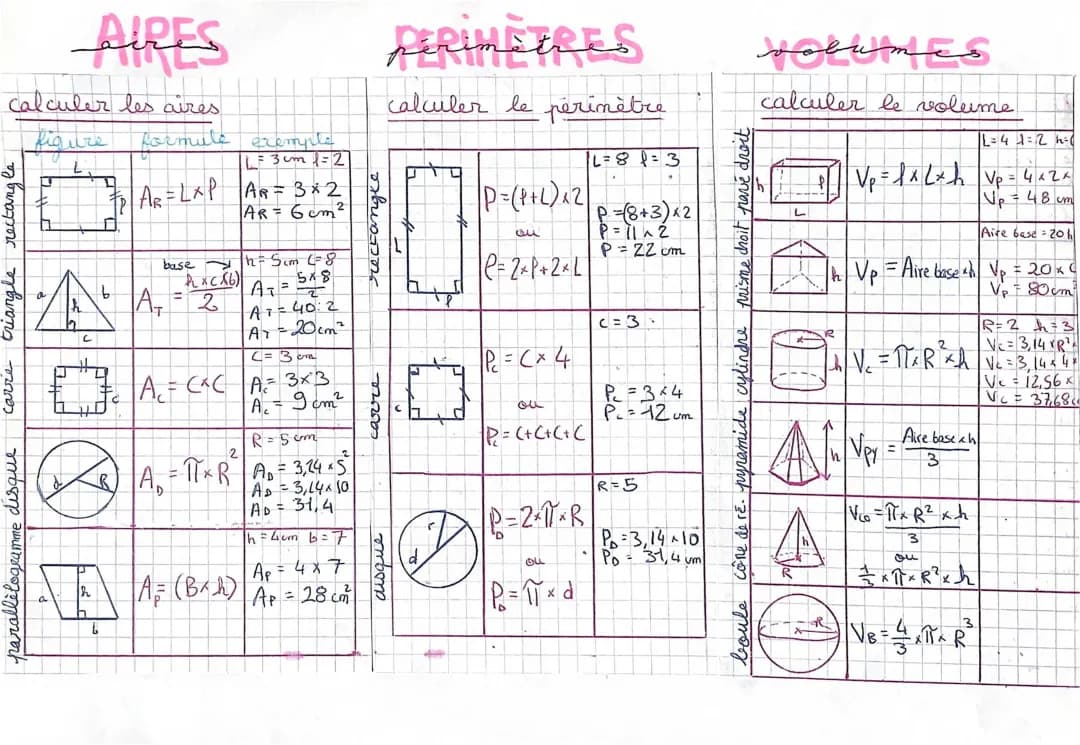 AIRES
aires
calculer les aires
figure formule exemple
rectangle
L
l
AR = L×l
L = 3 cm l = 2
AR = 3 × 2
AR = 6 cm²
triangle
a
b
h
c
base
AT = h×c(×b)
2
h = 5 cm C = 8
AT = 5×8
2
AT = 40 : 2
AT = 20 cm²
carré
c
Ac = C×C
C = 3 cm
Ac = 3×3
Ac = 9 cm²
disque
d
R
AD = π×R²
R = 5 cm
AD = 3,14 × 5²
AD = 3,14 × 10
AD = 31,4
parallélogramme
a
h
b
AP = (B×h)
h = 4 cm b = 7
AP = 4 × 7
AP = 28 cm²
PÉRIMÈTRES
périmètres
calculer le périmètre
rectangle
L
l
P = (l+L)×2
ou
P = 2×l+2×L
L = 8 l = 3
P = (8+3)×2
P = 11 × 2
P = 22 cm
carré
c
Pc = C × 4
ou
Pc = C+C+C+C
c = 3
Pc = 3×4
Pc = 12 cm
disque
r
d
PD = 2×π×R
ou
PD = π × d
R = 5
PD = 3,14 × 10
PD = 31,4 cm
VOLUMES
volumes
calculer le volume
pavé droit
h
l
L
Vp = l×L×h
L=4 l=2 h=
Vp = 4×2×
Vp = 48 cm
prisme droit
h
Vp = Aire base×h
Aire base = 20
Vp = 20×
Vp = 80 cm
cylindre
R
h
Vc = π×R²×h
R = 2 h = 3
Vc = 3,14×R²
Vc = 3,14×4×
Vc = 12,56×
Vc = 37,68
pyramide
h
Vpy = Aire base×h
3
cône de ré.
h
R
Vco = π×R²×h
3
ou
1/3 × π×R²×h
boule
R
VB = 4/3 × π× R³